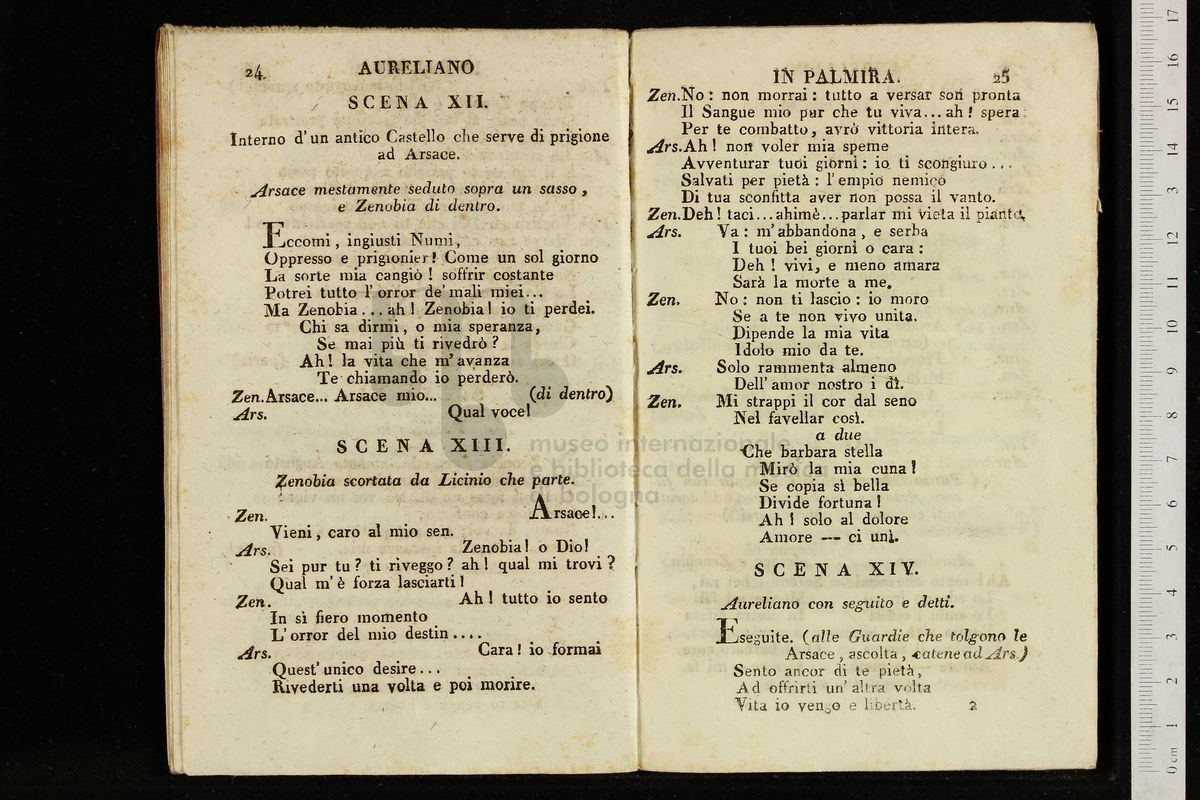 24
AURELIANO
SCENA XII.
Interno d'un antico Castello che serve di prigione
ad Arsace.
Arsace mestamente seduto sopra un sasso,
e Zenobia di dentro.
Eccomi, ingiusti Numi,
Oppresso e prigionier! Come un sol giorno
La sorte mia cangiò! soffrir costante
Potrei tutto l'orror de' mali miei...
Ma Zenobia... ah! Zenobia! io ti perdei.
Chi sa dirmi, o mia speranza,
Se mai più ti rivedrò?
Ah! la vita che m'avanza
Te chiamando io perderò.
Zen. Arsace... Arsace mio... (di dentro)
Ars. Qual voce!
SCENA XIII.
Zenobia scortata da Licinio che parte.
Zen. Arsace!...
Vieni, caro al mio sen.
Ars. Zenobia! o Dio!
Sei pur tu? ti riveggo? ah! qual mi trovi?
Qual m'è forza lasciarti!
Zen. Ah! tutto io sento
In sì fiero momento
L'orror del mio destin....
Ars. Cara! io formai
Quest'unico desire...
Rivederti una volta e poi morire.
IN PALMIRA. 25
Zen. No: non morrai: tutto a versar son pronta
Il Sangue mio pur che tu viva... ah! spera
Per te combatto, avrò vittoria intera.
Ars. Ah! non voler mia speme
Avventurar tuoi giorni: io ti scongiuro...
Salvati per pietà: l'empio nemico
Di tua sconfitta aver non possa il vanto.
Zen. Deh! taci... ahimè... parlar mi vieta il pianto.
Ars. Va: m'abbandona, e serba
I tuoi bei giorni o cara:
Deh! vivi, e meno amara
Sarà la morte a me.
Zen. No: non ti lascio: io moro
Se a te non vivo unita.
Dipende la mia vita
Idolo mio da te.
Ars. Solo rammenta almeno
Dell'amor nostro i dì.
Zen. Mi strappi il cor dal seno
Nel favellar così.
a due
Che barbara stella
Mirò la mia cuna!
Se copia sì bella
Divide fortuna!
Ah! solo al dolore
Amore --- ci unì.
SCENA XIV.
Aureliano con seguito e detti.
Eseguite. (alle Guardie che tolgono le
Arsace, ascolta, catene ad Ars.)
Sento ancor di te pietà,
Ad offrirti un'altra volta
Vita io vengo e libertà. 2
museo internazionale
e biblioteca della musica
di bologna
0 cm 1 2 3 4 5 6 7 8 9 10 11 12 13 14 15 16 17